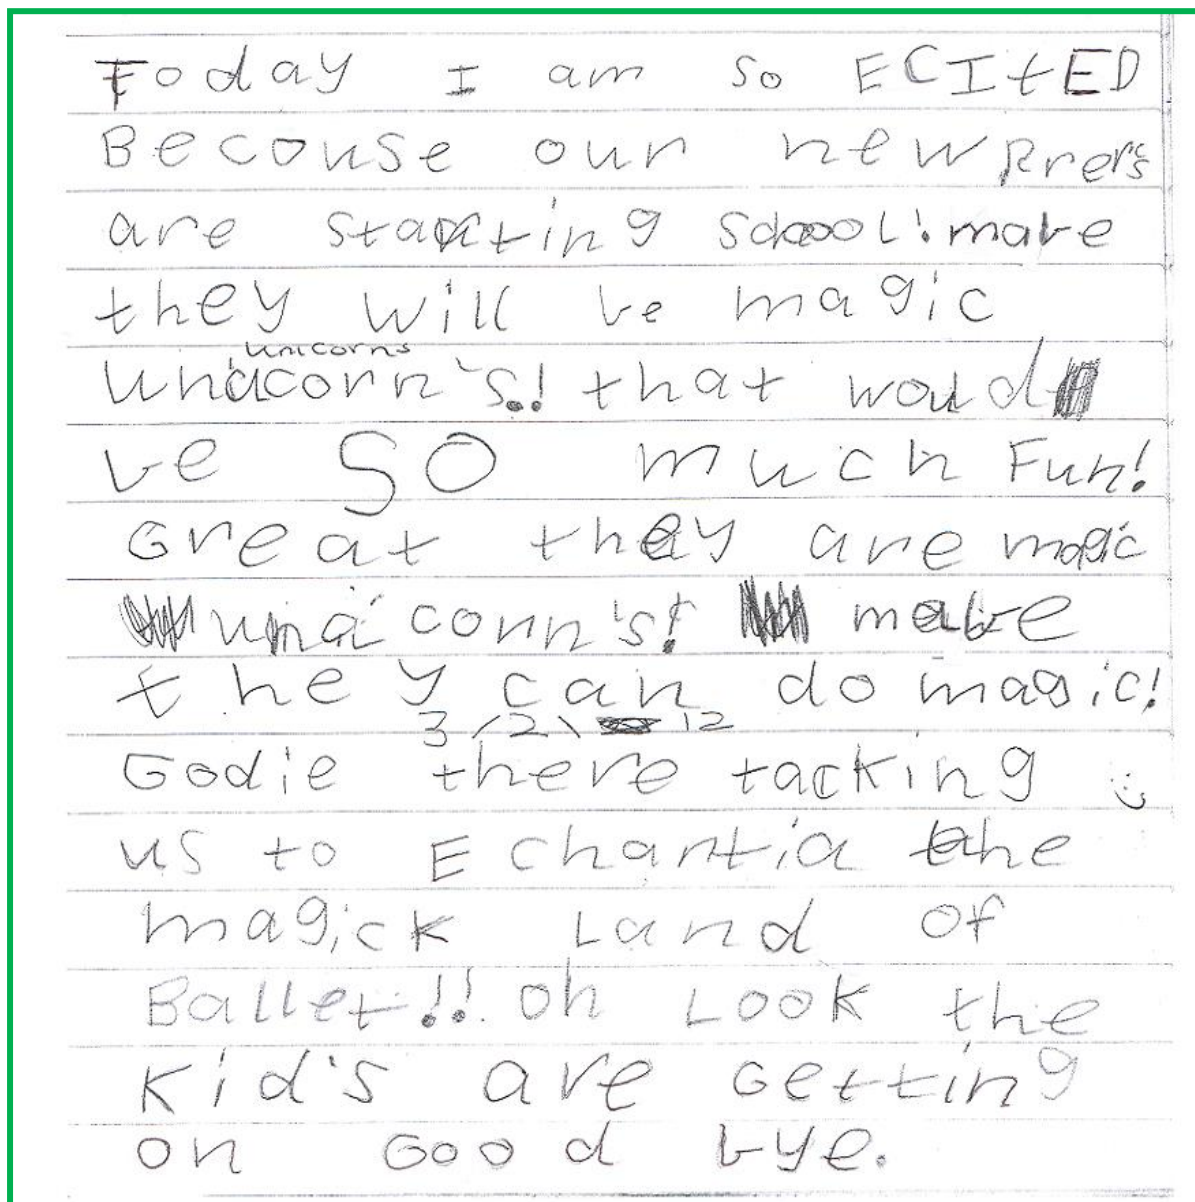 Today I am so ECItED
Becouse our new Prers
are starting scloool! mabe
they will be magic
unicorns
unacorn's! that would
be SO much Fun!
Great they are magic
unacorn's! mabe
they can do magic!
3 12
Godie there tacking
us to Echantia the
magick Land of
Ballet!! oh Look the
Kid's are Getting
on Good bye.